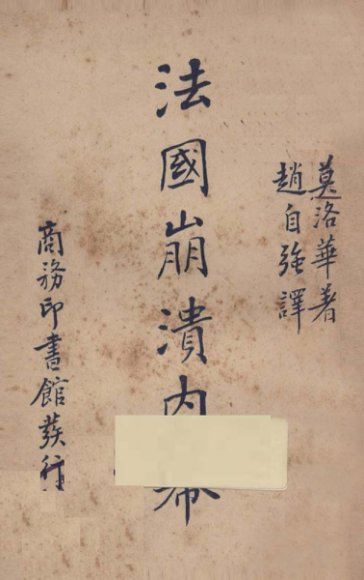 莫洛華著
趙自強譯
法國崩潰內
商務印書館發行